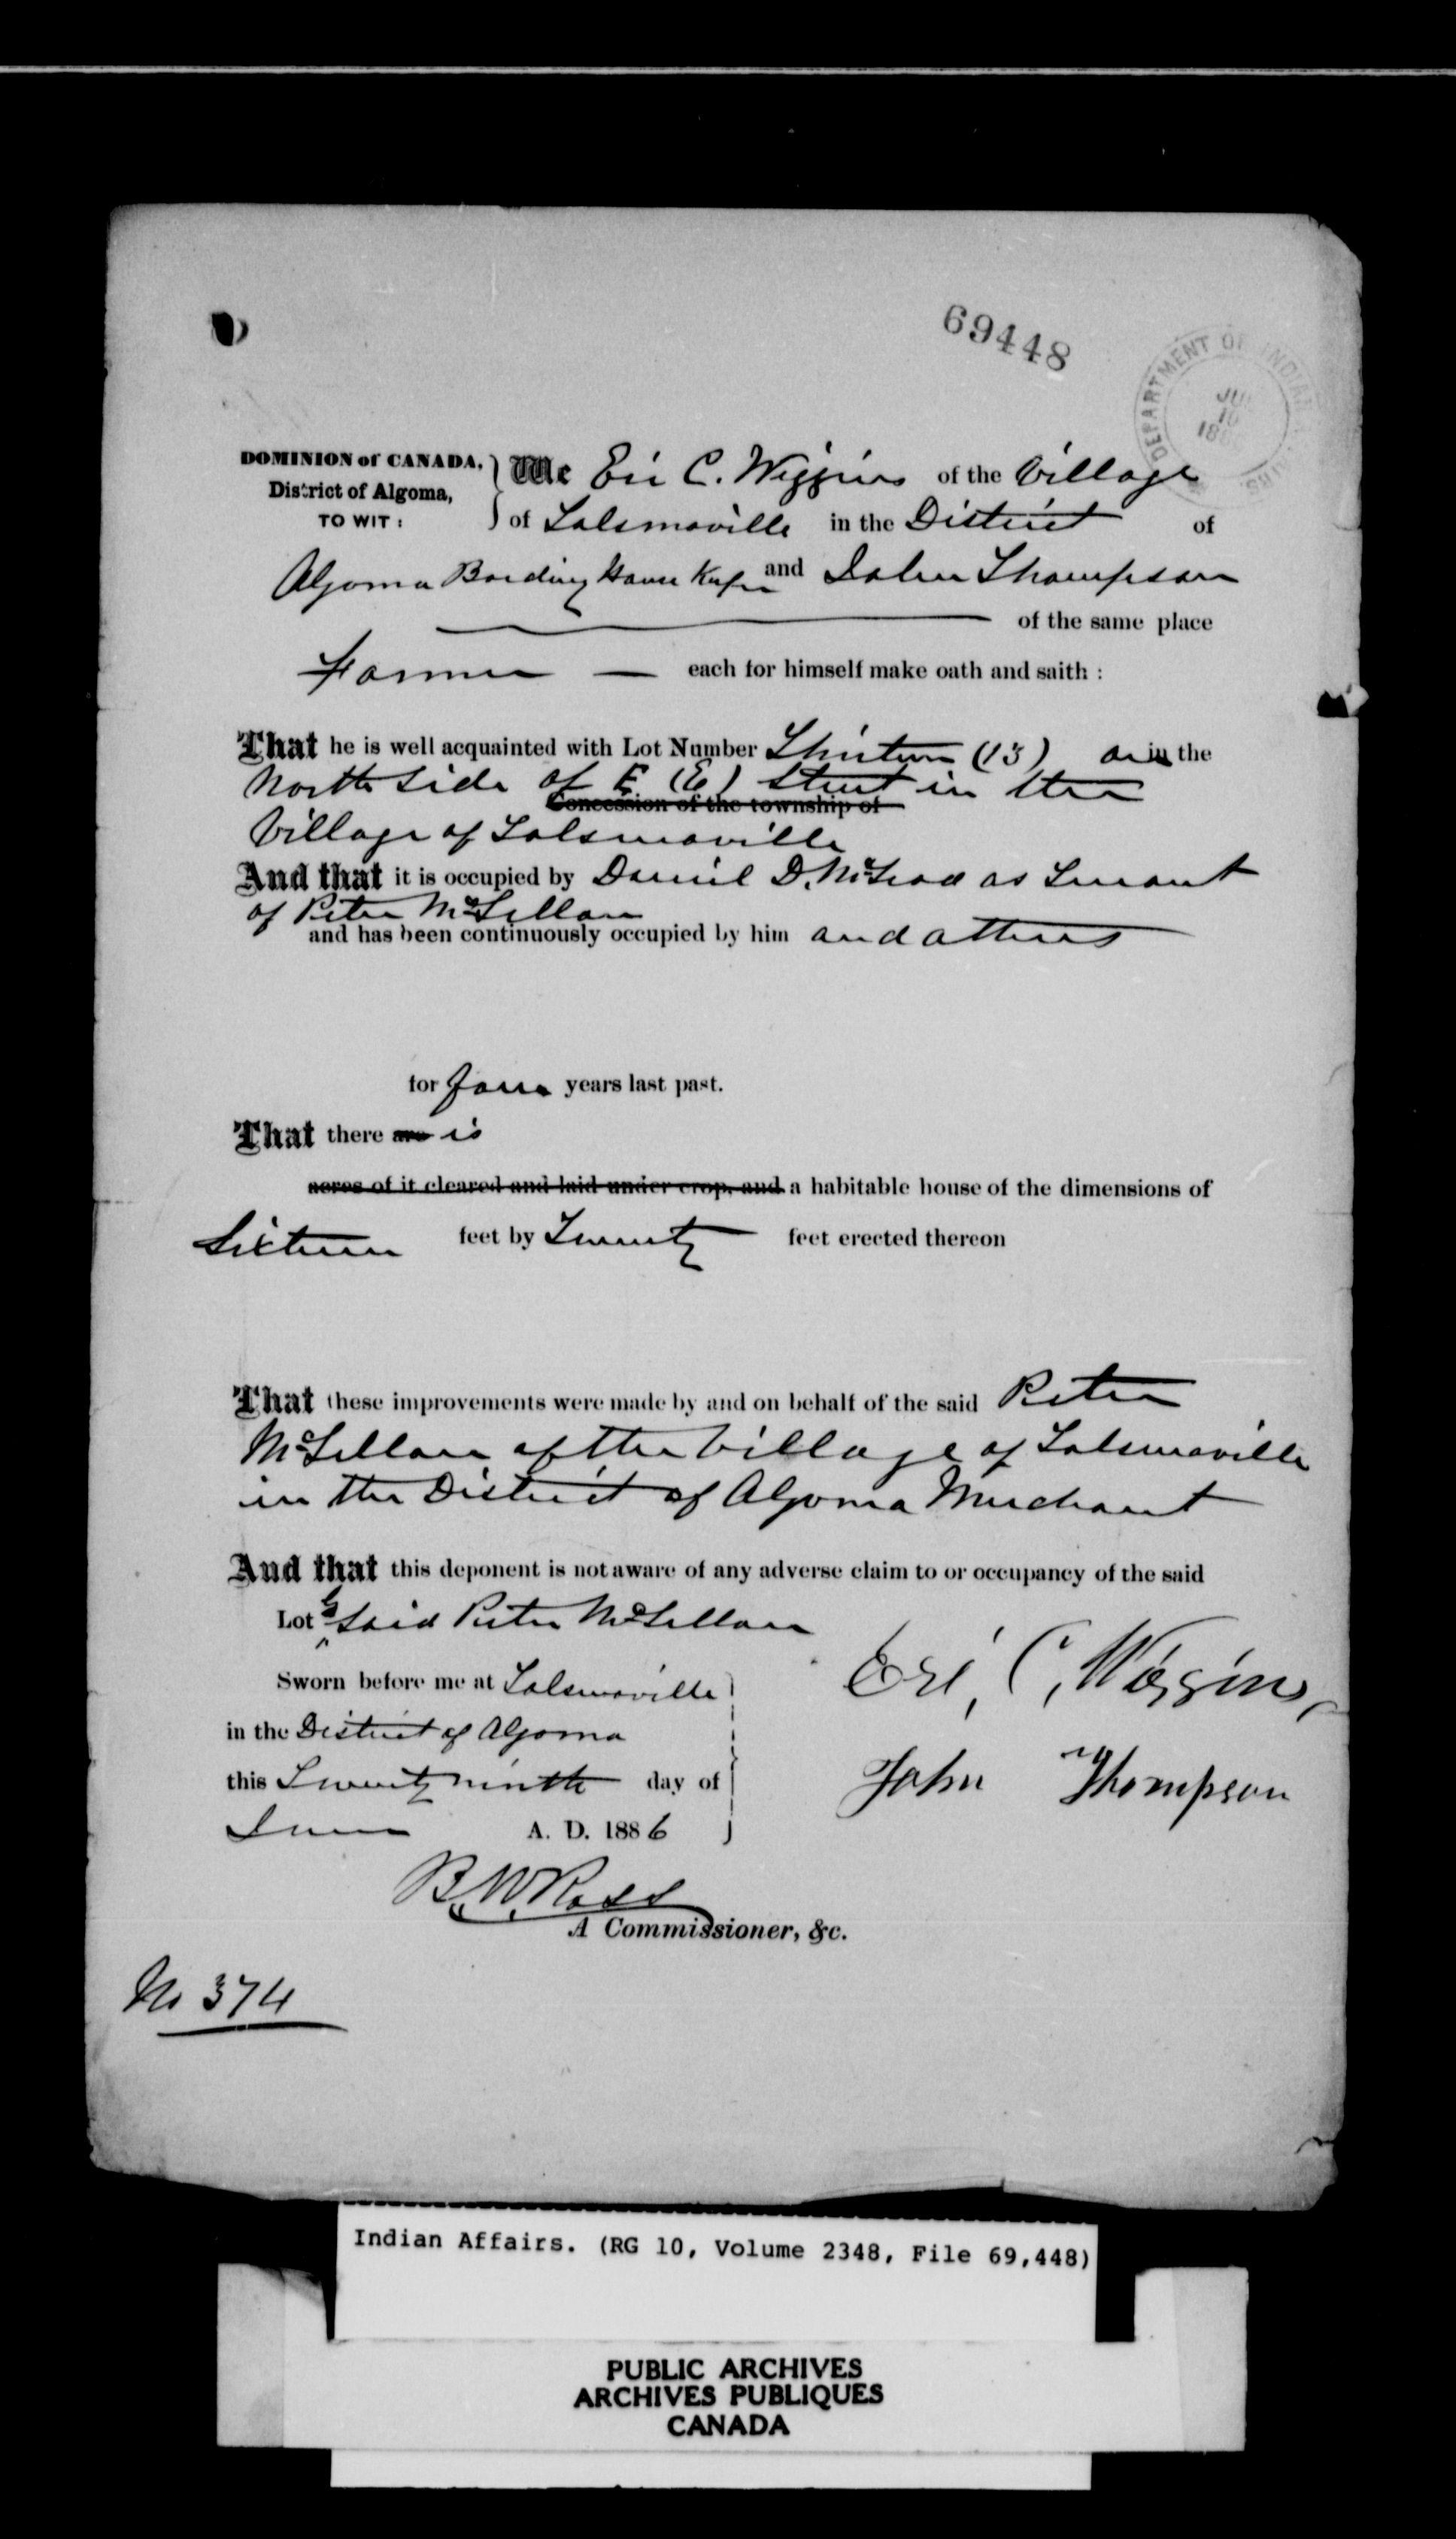 69448
DEPARTMENT OF INDIAN
10
DOMINION of CANADA,
District of Algoma,
TO WIT:
We Eri C. Wiggins of the Village
of Salsmaville in the District of
Algoma Boarding House Keeper and John Thompson
of the same place
Farmer — each for himself make oath and saith:
That he is well acquainted with Lot Number Thirteen (13) on the
North side of E (E) Street in the
Concession of the township of
Village of Salsmaville
And that it is occupied by Daniel D. McLeod as Tenant
of Peter McLellan
and has been continuously occupied by him and others
for four years last past.
That there are is
acres of it cleared and laid under crop, and a habitable house of the dimensions of
Sixteen feet by Twenty feet erected thereon
That these improvements were made by and on behalf of the said Peter
McLellan of the Village of Salsmaville
in the District of Algoma Merchant
And that this deponent is not aware of any adverse claim to or occupancy of the said
Lot by said Peter McLellan
Sworn before me at Salsmaville
in the District of Algoma
this Twenty ninth day of
June A. D. 1886
Eri, C, Wiggins,
John Thompson
B. W. Ross
A Commissioner, &c.
No 374
Indian Affairs. (RG 10, Volume 2348, File 69,448)
PUBLIC ARCHIVES
ARCHIVES PUBLIQUES
CANADA